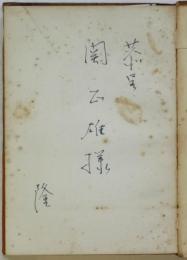 恭呈
関正雄様
隆